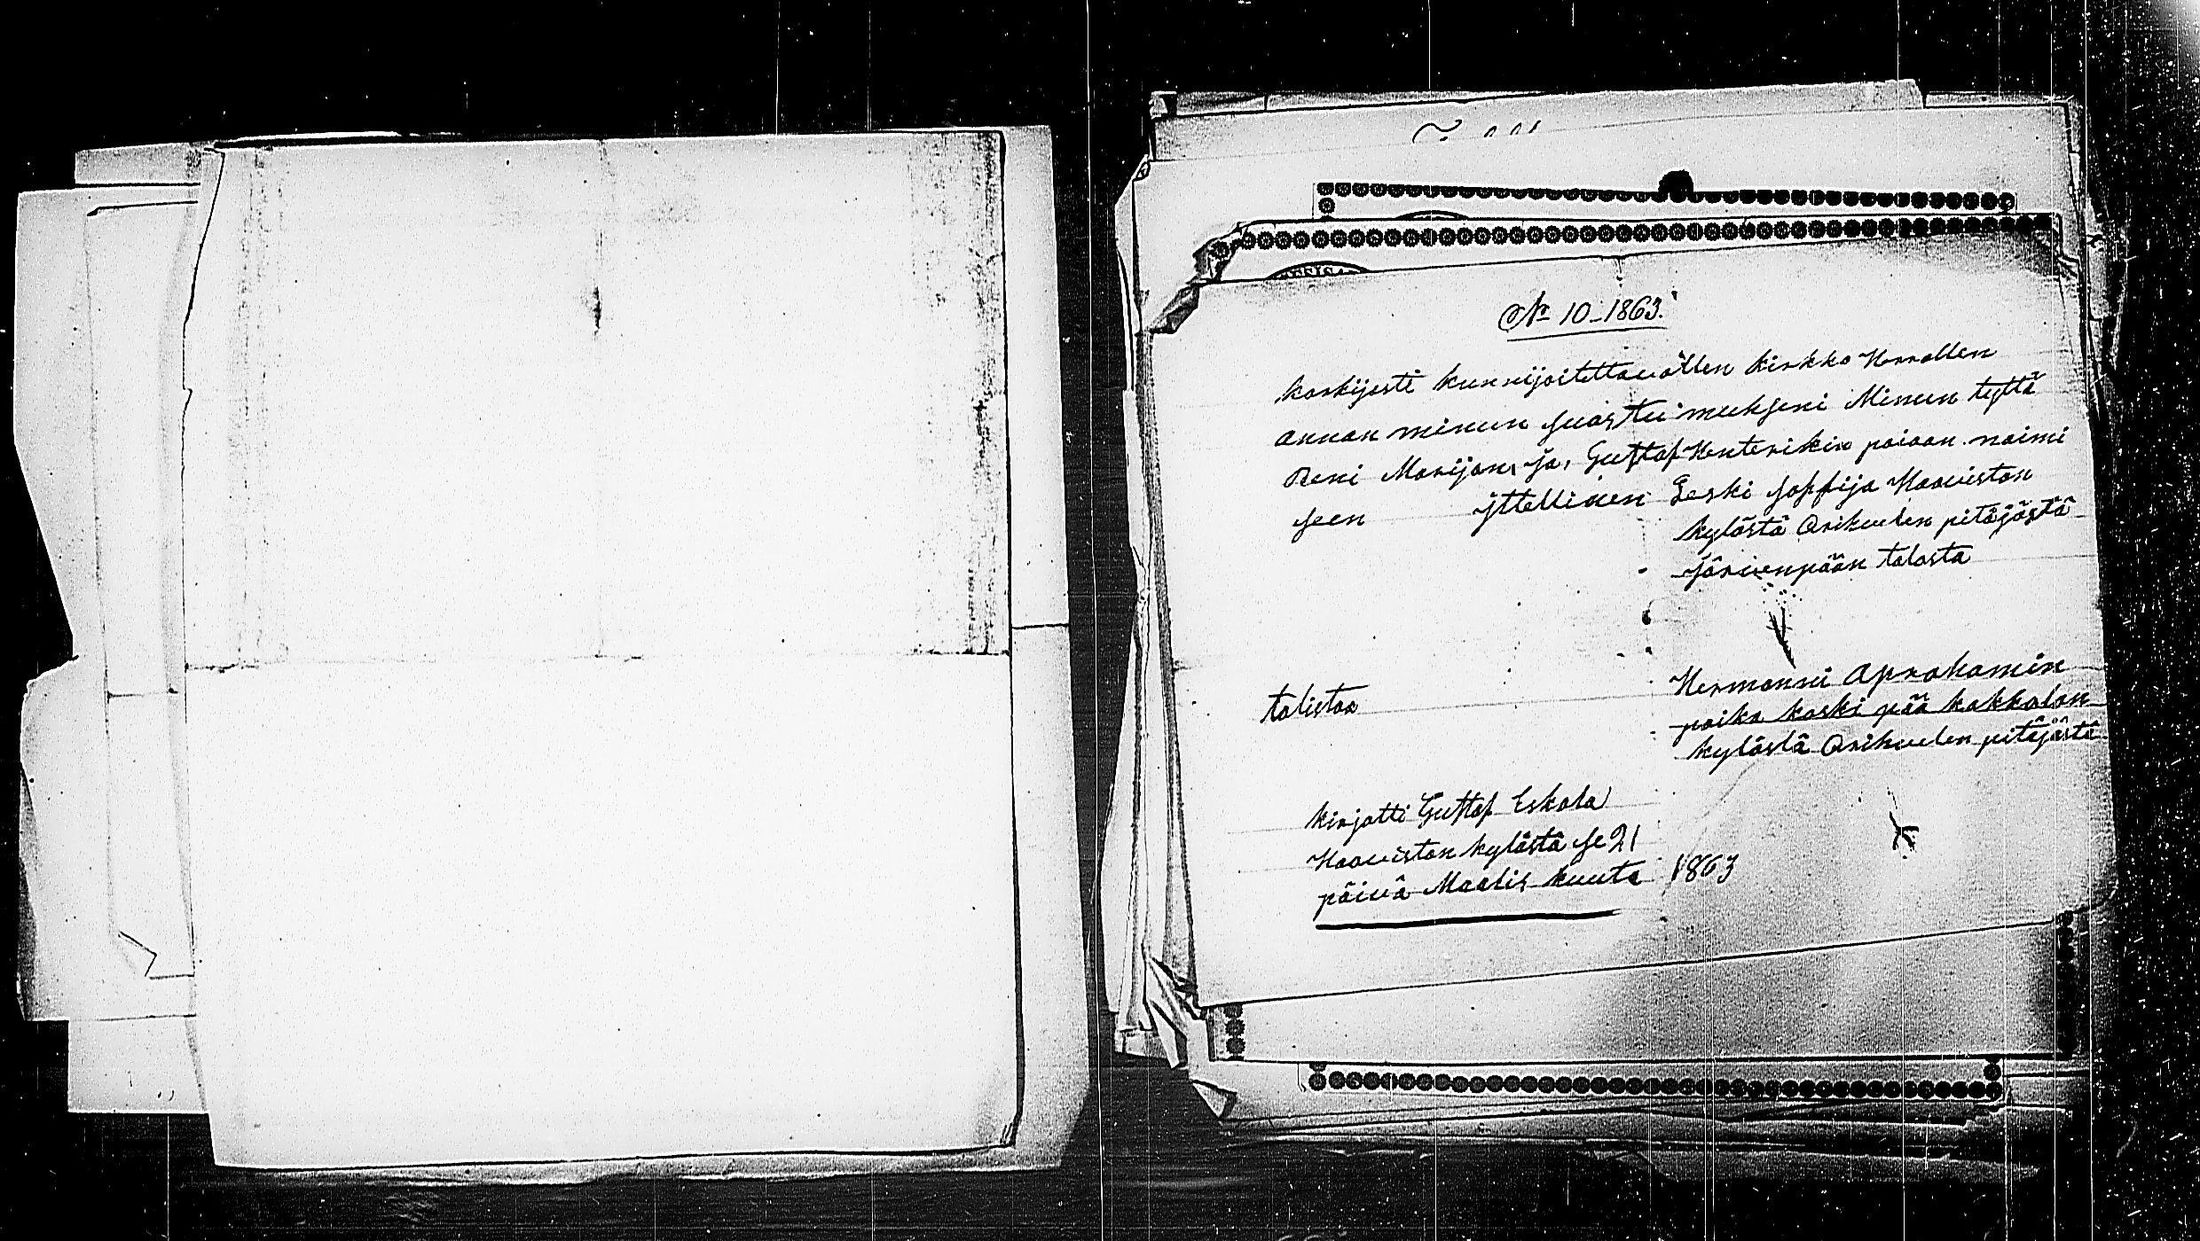 № 10-1863.
korkijesti kunnijoitettavallen kirkko Herrallen
annan minun suostu mukseni Minun tyttä
Reni Marijan, ja, Gustaf Henterikin poiaan naimi
seen yttellinen Leski soffija Haaviston
kylästä Orihvelen pitäjästä
järvenpään talosta
Hermanni Aprahamin
poika koski pää kakkolan
kylästä Orihvelen pitäjästä
talistaa
kirjatti Gustaf Eskola
Haaviston kylästä se 21
päivä Maalis kuuta 1863